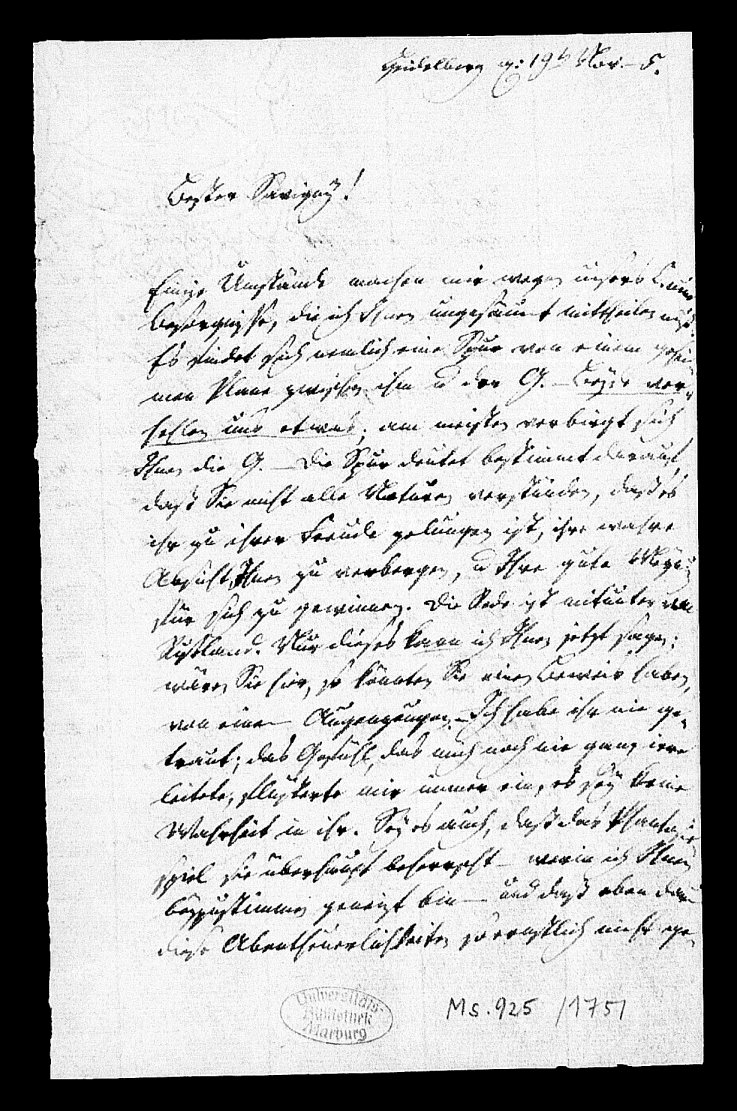 Heidelberg d: 19t Nov. 5.
Bester Savigny!
Einige Umstände machen mir wegen unsers
Besorgnisse, die ich Ihnen ungesäumt mittheilen muß.
Es findet sich nemlich eine Spur von einem gehei
men Plane zwischen ihm u der G. – Beyde ver
hehlen uns etwas; am meisten verbirgt sich
Ihnen die G. – Die Spur deutet bestimmt darauf,
daß Sie nicht alle Naturen verstünden, daß es
ihr zu ihrer Freude gelungen ist, ihre wahre
Absicht Ihnen zu verbergen, u Ihre gute
für sich zu gewinnen. Die Rede ist mitunter von
Rußland. Nur dieses kann ich Ihnen jetzt sagen;
wären Sie hier, so könnten Sie einen Beweis haben,
von einem Augenzeugen. – Ich habe ihr nie ge
traut; das Gefühl, das mich noch nie ganz irre
leitete, flüsterte mir immer ein, es sey keine
Wahrheit in ihr. Sey es auch, daß das Phantasie
spiel sie überhaupt beherrscht – worin ich Ihnen
beyzustimmen geneigt bin – und daß eben darum
diese Abentheuerlichkeiten so ernstlich nicht
Universitäts-
Bibliothek
Marburg
Ms. 925 /1751